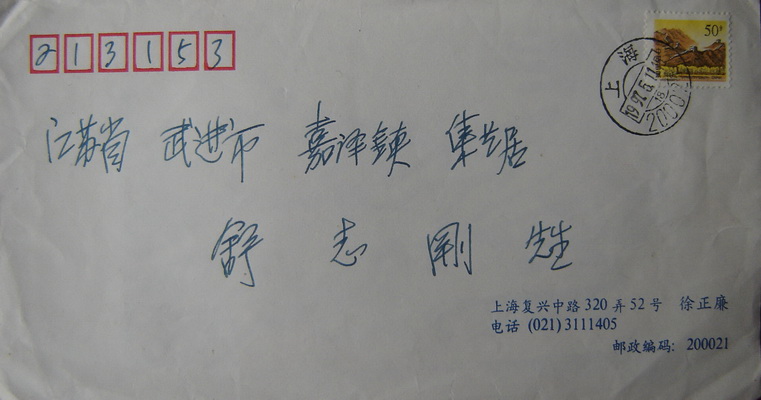 213153
50分
上海
1997.5.11
江苏省 武进市 嘉泽镇 集艺居
舒志刚 先生
上海复兴中路 320 弄 52 号 徐正廉
电话 (021) 3111405
邮政编码: 200021